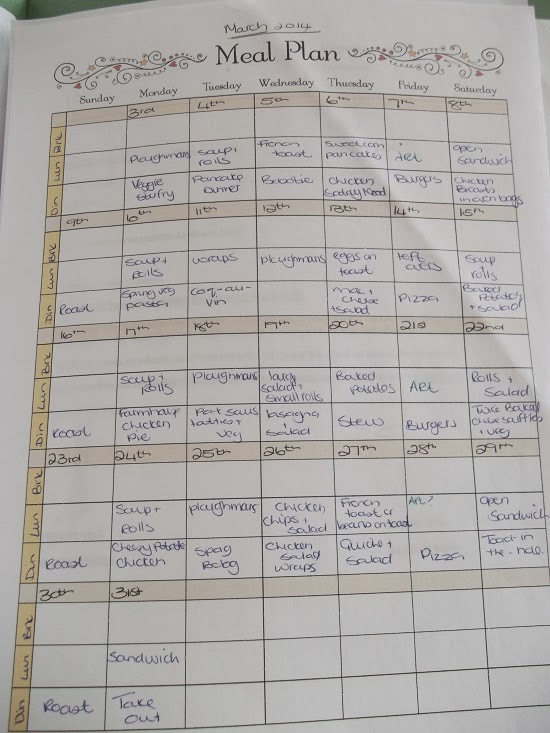 March 2014
Meal Plan
Sunday Monday Tuesday Wednesday Thursday Friday Saturday
3rd 4th 5th 6th 7th 8th
Brk
Lun Ploughmans Soup + rolls French toast Sweetcorn pancakes ART open Sandwich
Din Veggie Stirfry Pancake Dinner Bobotie Chicken Satay Nood Burgers Chicken Breasts in oven bags
9th 10th 11th 12th 13th 14th 15th
Brk
Lun Soup + Rolls wraps ploughmans eggs on toast Left overs Soup rolls
Din Roast Spring veg pasta coq-au-vin mac + Cheese + Salad Pizza Baked Potatoes + Salad
16th 17th 18th 19th 20th 21st 22nd
Brk
Lun Soup + Rolls Ploughmans large salad + Small rolls Baked Potatoes ART Rolls + Salad
Din Roast farmhouse chicken Pie Pork saus + veg lasagna + Salad Stew Burgers Twice Baked Cheese Souffles + veg
23rd 24th 25th 26th 27th 28th 29th
Brk
Lun Soup + Rolls ploughmans Chicken Chips + Salad French toast or beans on toast Art? open Sandwich
Din Roast Cheesy Potato chicken Spag Bolog Chicken Salad wraps Quiche + Salad Pizza Toad in the-hole
30th 31st
Brk
Lun Sandwich
Din Roast Take out